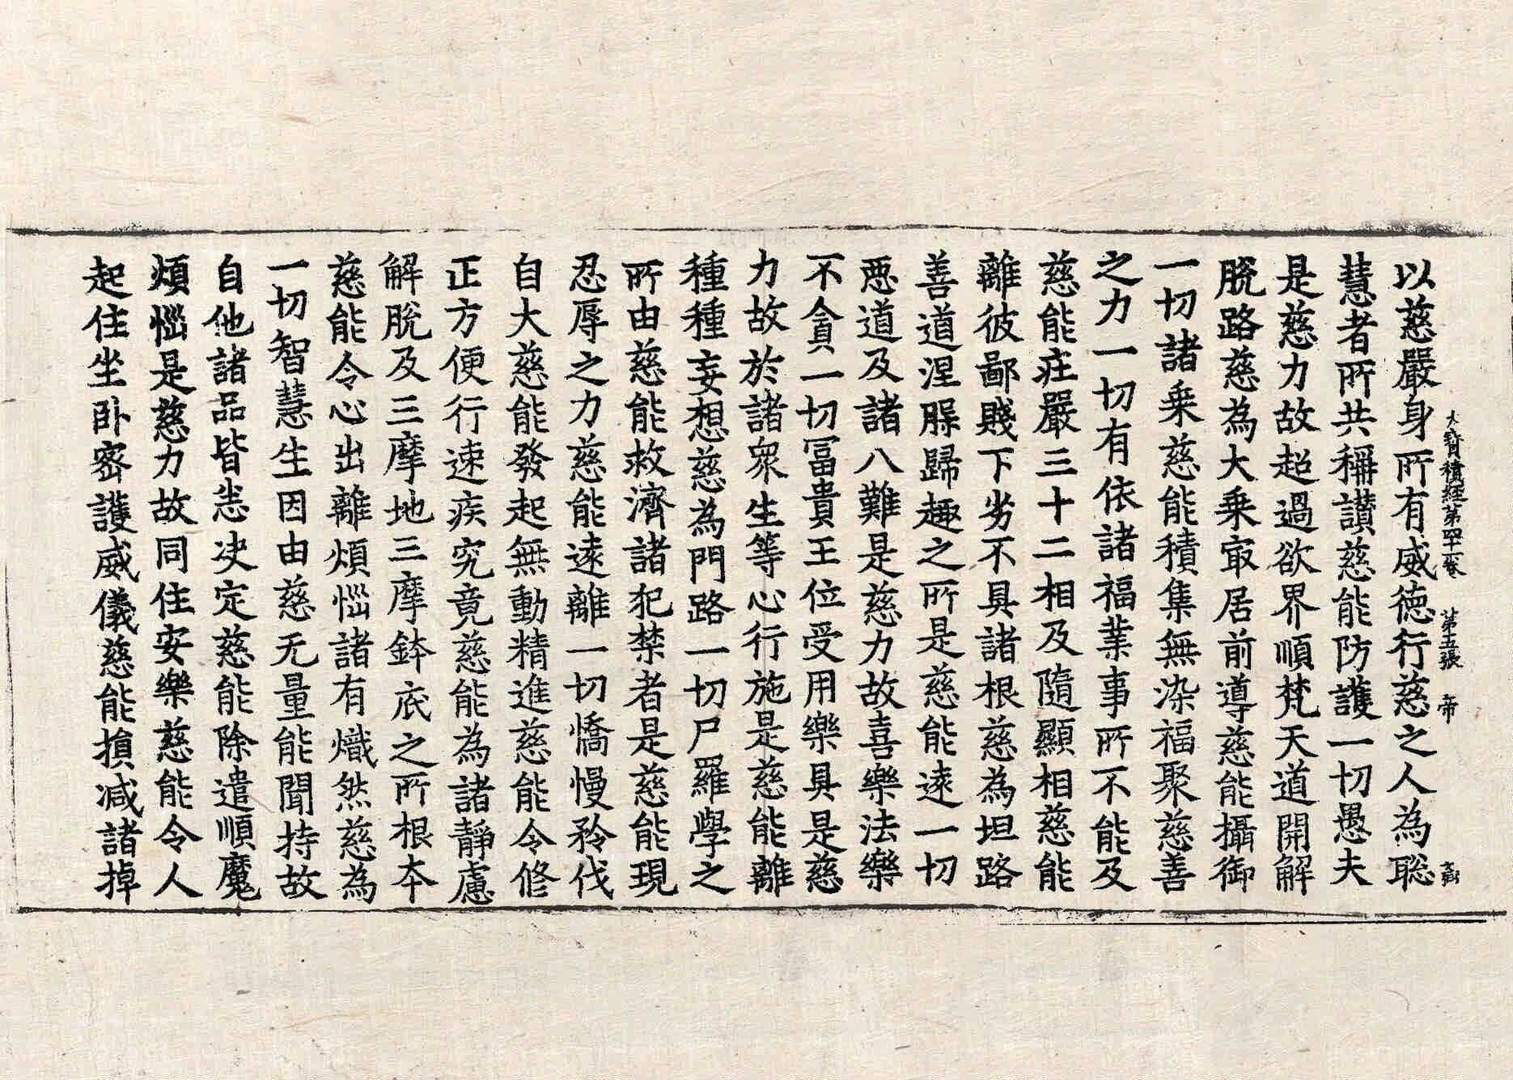 大寶積經第四十一卷 第五張 帝
以慈嚴身所有威德行慈之人為聡
慧者所共稱讃慈能防護一切愚夫
是慈力故超過欲界順梵天道開解
脫路慈為大乗㝡居前導慈能攝御
一切諸乗慈能積集無染福聚慈善
之力一切有依諸福業事所不能及
慈能莊嚴三十二相及隨顯相慈能
離彼鄙賤下劣不具諸根慈為坦路
善道涅槃歸趣之所是慈能逺一切
惡道及諸八難是慈力故喜樂法樂
不貪一切冨貴王位受用樂具是慈
力故於諸衆生等心行施是慈能離
種種妄想慈為門路一切尸羅學之
所由慈能救濟諸犯禁者是慈能現
忍辱之力慈能逺離一切憍慢矜伐
自大慈能發起無動精進慈能令修
正方便行速疾究竟慈能為諸靜慮
解脫及三摩地三摩鉢底之所根本
慈能令心出離煩惱諸有熾然慈為
一切智慧生因由慈无量能聞持故
自他諸品皆悉决定慈能除遣順魔
煩惱是慈力故同住安樂慈能令人
起住坐卧密護威儀慈能損减諸掉